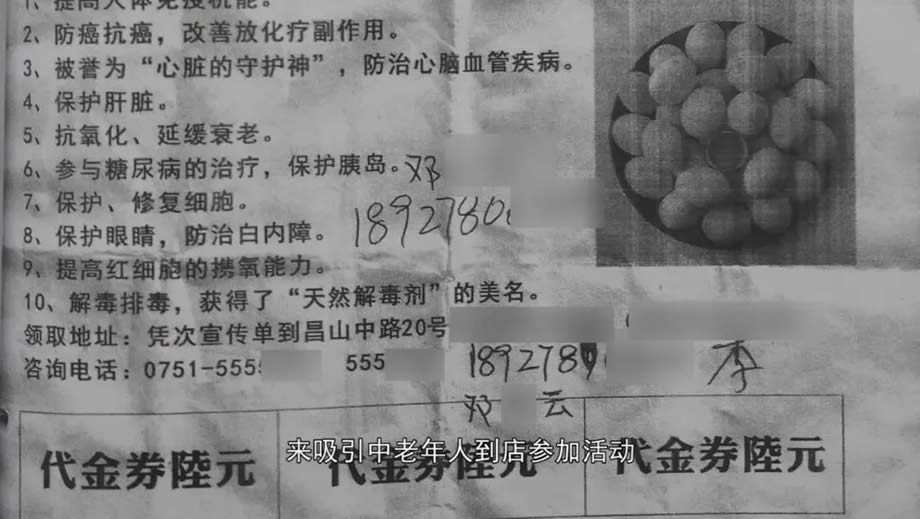 1、提高人体免疫机能。
2、防癌抗癌，改善放化疗副作用。
3、被誉为“心脏的守护神”，防治心脑血管疾病。
4、保护肝脏。
5、抗氧化、延缓衰老。
6、参与糖尿病的治疗，保护胰岛。邓
7、保护、修复细胞。
1892780
8、保护眼睛，防治白内障。
9、提高红细胞的携氧能力。
10、解毒排毒，获得了“天然解毒剂”的美名。
领取地址：凭次宣传单到昌山中路20号
咨询电话：0751-555 555 189278 李
邓 云
代金券陸元 代金券陸元 代金券陸元
来吸引中老年人到店参加活动